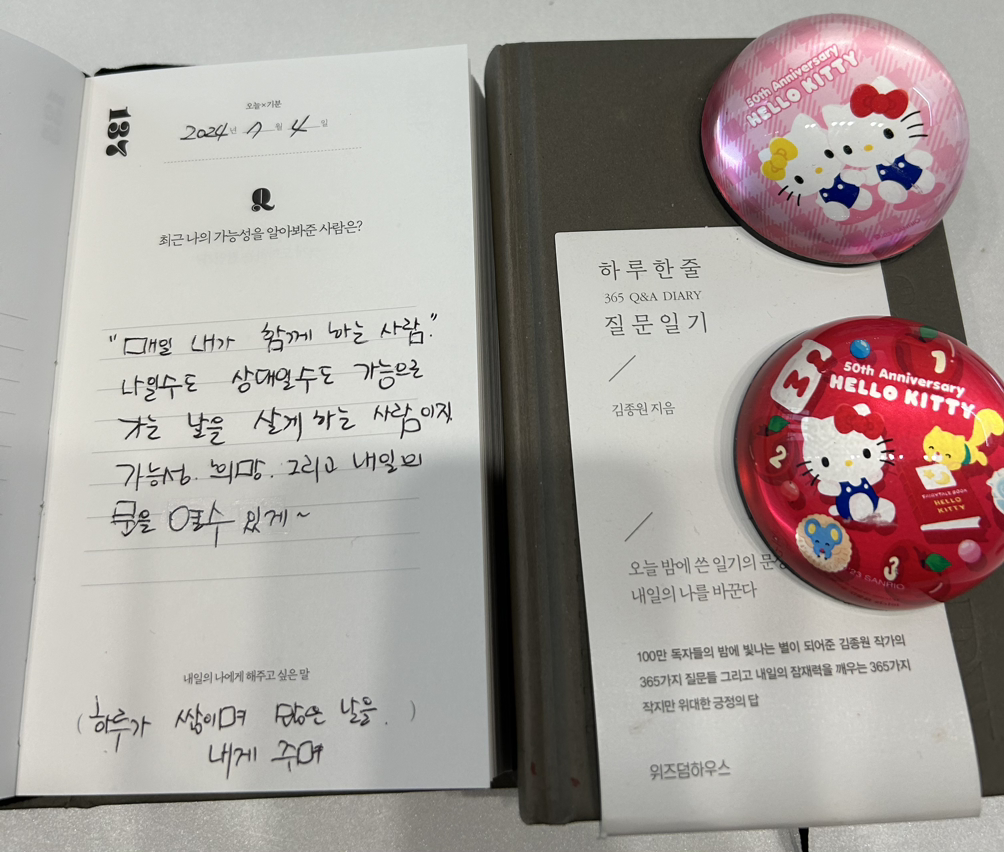 137
오늘×기분
2024년 7월 4일
Q
최근 나의 가능성을 알아봐준 사람은?
"매일 내가 함께 하는 사람."
나일수도 상대일수도 가능으로
가는 날을 살게 하는 사람이지
가능성. 희망. 그리고 내일의
문을 열수 있게~
내일의 나에게 해주고 싶은 말
(하루가 쌓이며 많은 날을.)
내게 주며
하루 한 줄
365 Q&A DIARY
질문일기
김종원 지음
오늘 밤에 쓴 일기의
내일의 나를 바꾼다
100만 독자들의 밤에 빛나는 별이 되어준 김종원 작가의
365가지 질문들 그리고 내일의 잠재력을 깨우는 365가지
작지만 위대한 긍정의 답
위즈덤하우스
50th Anniversary
HELLO KITTY
50th Anniversary
HELLO KITTY
1
2
3
HELLO
KITTY
23 SANRIO